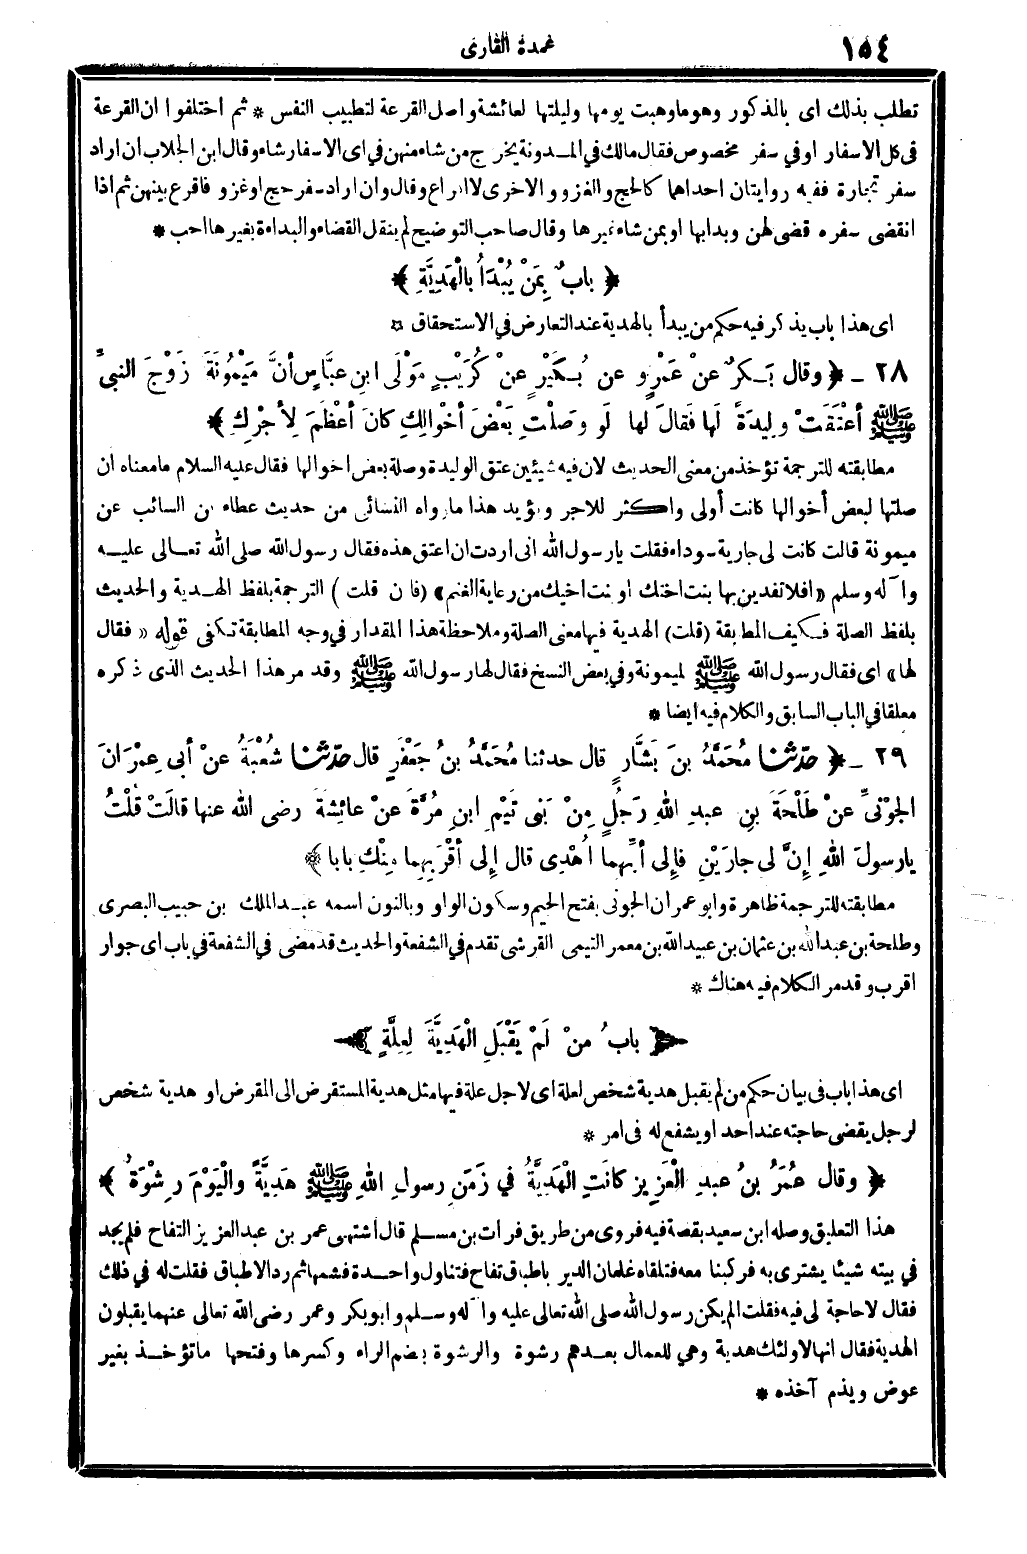 ١٥٤
عمدة القارى
تطلب بذلك اى بالمذكور وهو ما وهبت يومها وليلتها لعائشة واصل القرعة لتطييب النفس * ثم اختلفوا ان القرعة
فى كل الاسفار او فى سفر مخصوص فقال مالك فى المدونة يخرج من شاء منهن فى اى الاسفار شاء وقال ابن الجلاب ان اراد
سفر تجارة ففيه روايتان احداهما كالحج والغزو والاخرى لا اقراع وقال وان اراد سفر حج او غزو فاقرع بينهن ثم اذا
انقضى سفره قضى لهن وبدا بها او بمن شاء غيرها وقال صاحب التوضيح لم ينقل القضاء والبداءة بغيرها احب *
﴿ بابٌ بِمَنْ يُبْدَأُ بالْهَدِيَّةِ ﴾
اى هذا باب يذكر فيه حكم من يبدأ بالهدية عند التعارض في الاستحقاق *
٢٨ ـ ﴿ وقال بَكرٌ عنْ عَمْرٍو عن بُكَيْرٍ عنْ كُرَيْبٍ مَوْلَى ابنِ عبَّاسٍ أنَّ مَيْمُونَةَ زَوْجَ النبىِّ
ﷺ أعْتَقَتْ ولِيدَةً لَها فَقالَ لها لَو وصَلْتِ بَعْضَ أخْوالِكِ كانَ أعْظَمَ لِأجْرِكِ ﴾
مطابقته للترجمة تؤخذ من معنى الحديث لان فيه شيئين عتق الوليدة وصلة بعض اخوالها فقال عليه السلام ما معناه ان
صلتها لبعض أخوالها كانت أولى واكثر للاجر ويؤيد هذا ما رواه النسائى من حديث عطاء بن السائب عن
ميمونة قالت كانت لى جارية سوداء فقلت يارسول الله انى اردت ان اعتق هذه فقال رسول الله صلى الله تعالى عليه
وآله وسلم «افلا تفدين بها بنت اختك او بنت اخيك من رعاية الغنم» (فان قلت) الترجمة بلفظ الهدية والحديث
بلفظ الصلة فكيف المطابقة (قلت) الهدية فيها معنى الصلة وملاحظة هذا المقدار في وجه المطابقة تكفى قوله «فقال
لها» اى فقال رسول الله ﷺ لميمونة وفي بعض النسخ فقال لها رسول الله ﷺ وقد مر هذا الحديث الذى ذكره
معلقا في الباب السابق والكلام فيه ايضا *
٢٩ ـ ﴿ حدّثنا مُحَمَّدُ بنَ بَشَّارٍ قال حدثنا مُحَمَّدُ بنُ جَعْفَرٍ قال حدّثنا شُعْبَةُ عنْ أبى عِمْرَانَ
الجَوْنىِّ عنْ طَلْحَةَ بنِ عبدِ اللهِ رَجُلٍ مِنْ بَنى تَيْمِ ابنِ مُرَّةَ عنْ عائِشةَ رضى الله عنها قالَتْ قُلْتُ
يا رسولَ اللهِ إنَّ لى جارَيْنِ فإلى أيِّهِما أُهْدِى قال إلى أقْرَبِهِما مِنْكِ بابا ﴾
مطابقته للترجمة ظاهرة وابو عمران الجونى بفتح الجيم وسكون الواو وبالنون اسمه عبد الملك بن حبيب البصرى
وطلحة بن عبد الله بن عثمان بن عبيد الله بن معمر التيمى القرشى تقدم في الشفعة والحديث قد مضى في الشفعة في باب اى جوار
اقرب وقد مر الكلام فيه هناك *
﴿ بابُ منْ لَمْ يَقْبَلِ الْهَدِيَّةَ لِعِلَّةٍ ﴾
اى هذا باب فى بيان حكم من لم يقبل هدية شخص لعلة اى لاجل علة فيها مثل هدية المستقرض الى المقرض او هدية شخص
لرجل يقضى حاجته عند احد او يشفع له فى امر *
﴿ وقال عُمَرُ بنُ عبدِ الْعَزِيزِ كانَتِ الْهَدِيَّةُ في زَمَنِ رسولِ اللهِ ﷺ هَدِيَّةً والْيَوْمَ رِشْوَةٌ ﴾
هذا التعليق وصله ابن سعيد بقصة فيه فروى من طريق فرات بن مسلم قال اشتهى عمر بن عبد العزيز التفاح فلم يجد
في بيته شيئا يشترى به فركبنا معه فتلقاه غلمان الدير باطباق تفاح فتناول واحدة فشمها ثم رد الاطباق فقلت له في ذلك
فقال لا حاجة لى فيه فقلت الم يكن رسول الله صلى الله تعالى عليه وآله وسلم وابو بكر وعمر رضى الله تعالى عنهما يقبلون
الهدية فقال انها لاولئك هدية وهي للعمال بعدهم رشوة والرشوة بضم الراء وكسرها وفتحها ما تؤخذ بغير
عوض ويذم آخذه *